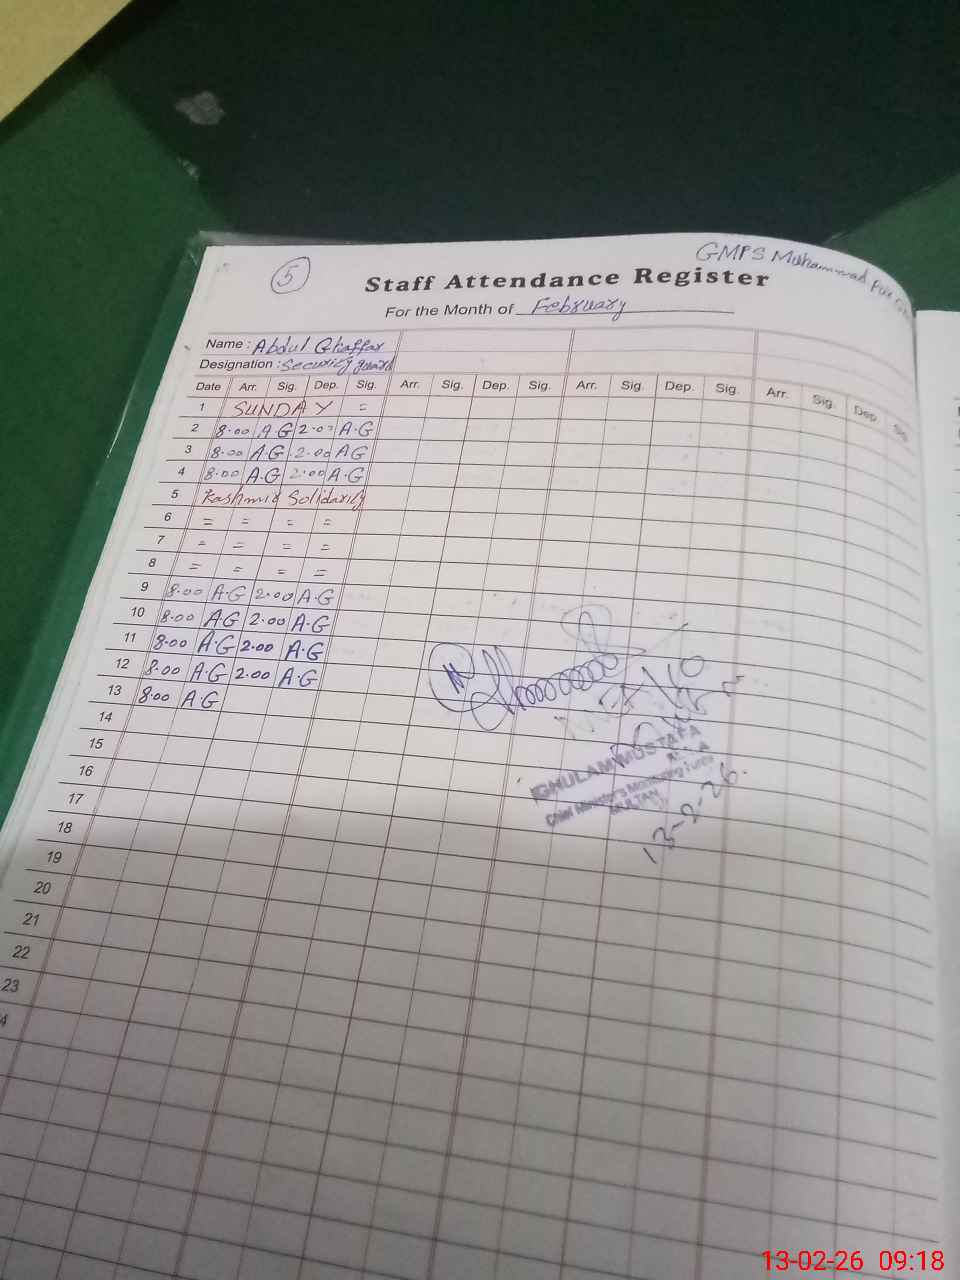 5
GMPS Muhammad Pur
Staff Attendance Register
For the Month of February
Name : Abdul Ghaffar
Designation : Security guard
Date Arr. Sig. Dep. Sig. Arr. Sig. Dep. Sig. Arr. Sig. Dep. Sig. Arr. Sig. Dep. Sig.
1 SUNDAY =
2 8.00 A G 2.00 A.G
3 8.00 A.G 2.00 A G
4 8.00 A.G 2.00 A.G
5 Kashmir Solidarity
6 = = = =
7 = = = =
8 = = = =
9 8.00 A.G 2.00 A.G
10 8.00 A.G 2.00 A.G
11 8.00 A.G 2.00 A.G
12 8.00 A.G 2.00 A.G
13 8.00 A.G
14
15
16
17
18
19
20
21
22
23
4
GHULAM MUSTAFA
Chief Minister's Monitoring Force
MULTAN
13-2-26.
13-02-26 09:18